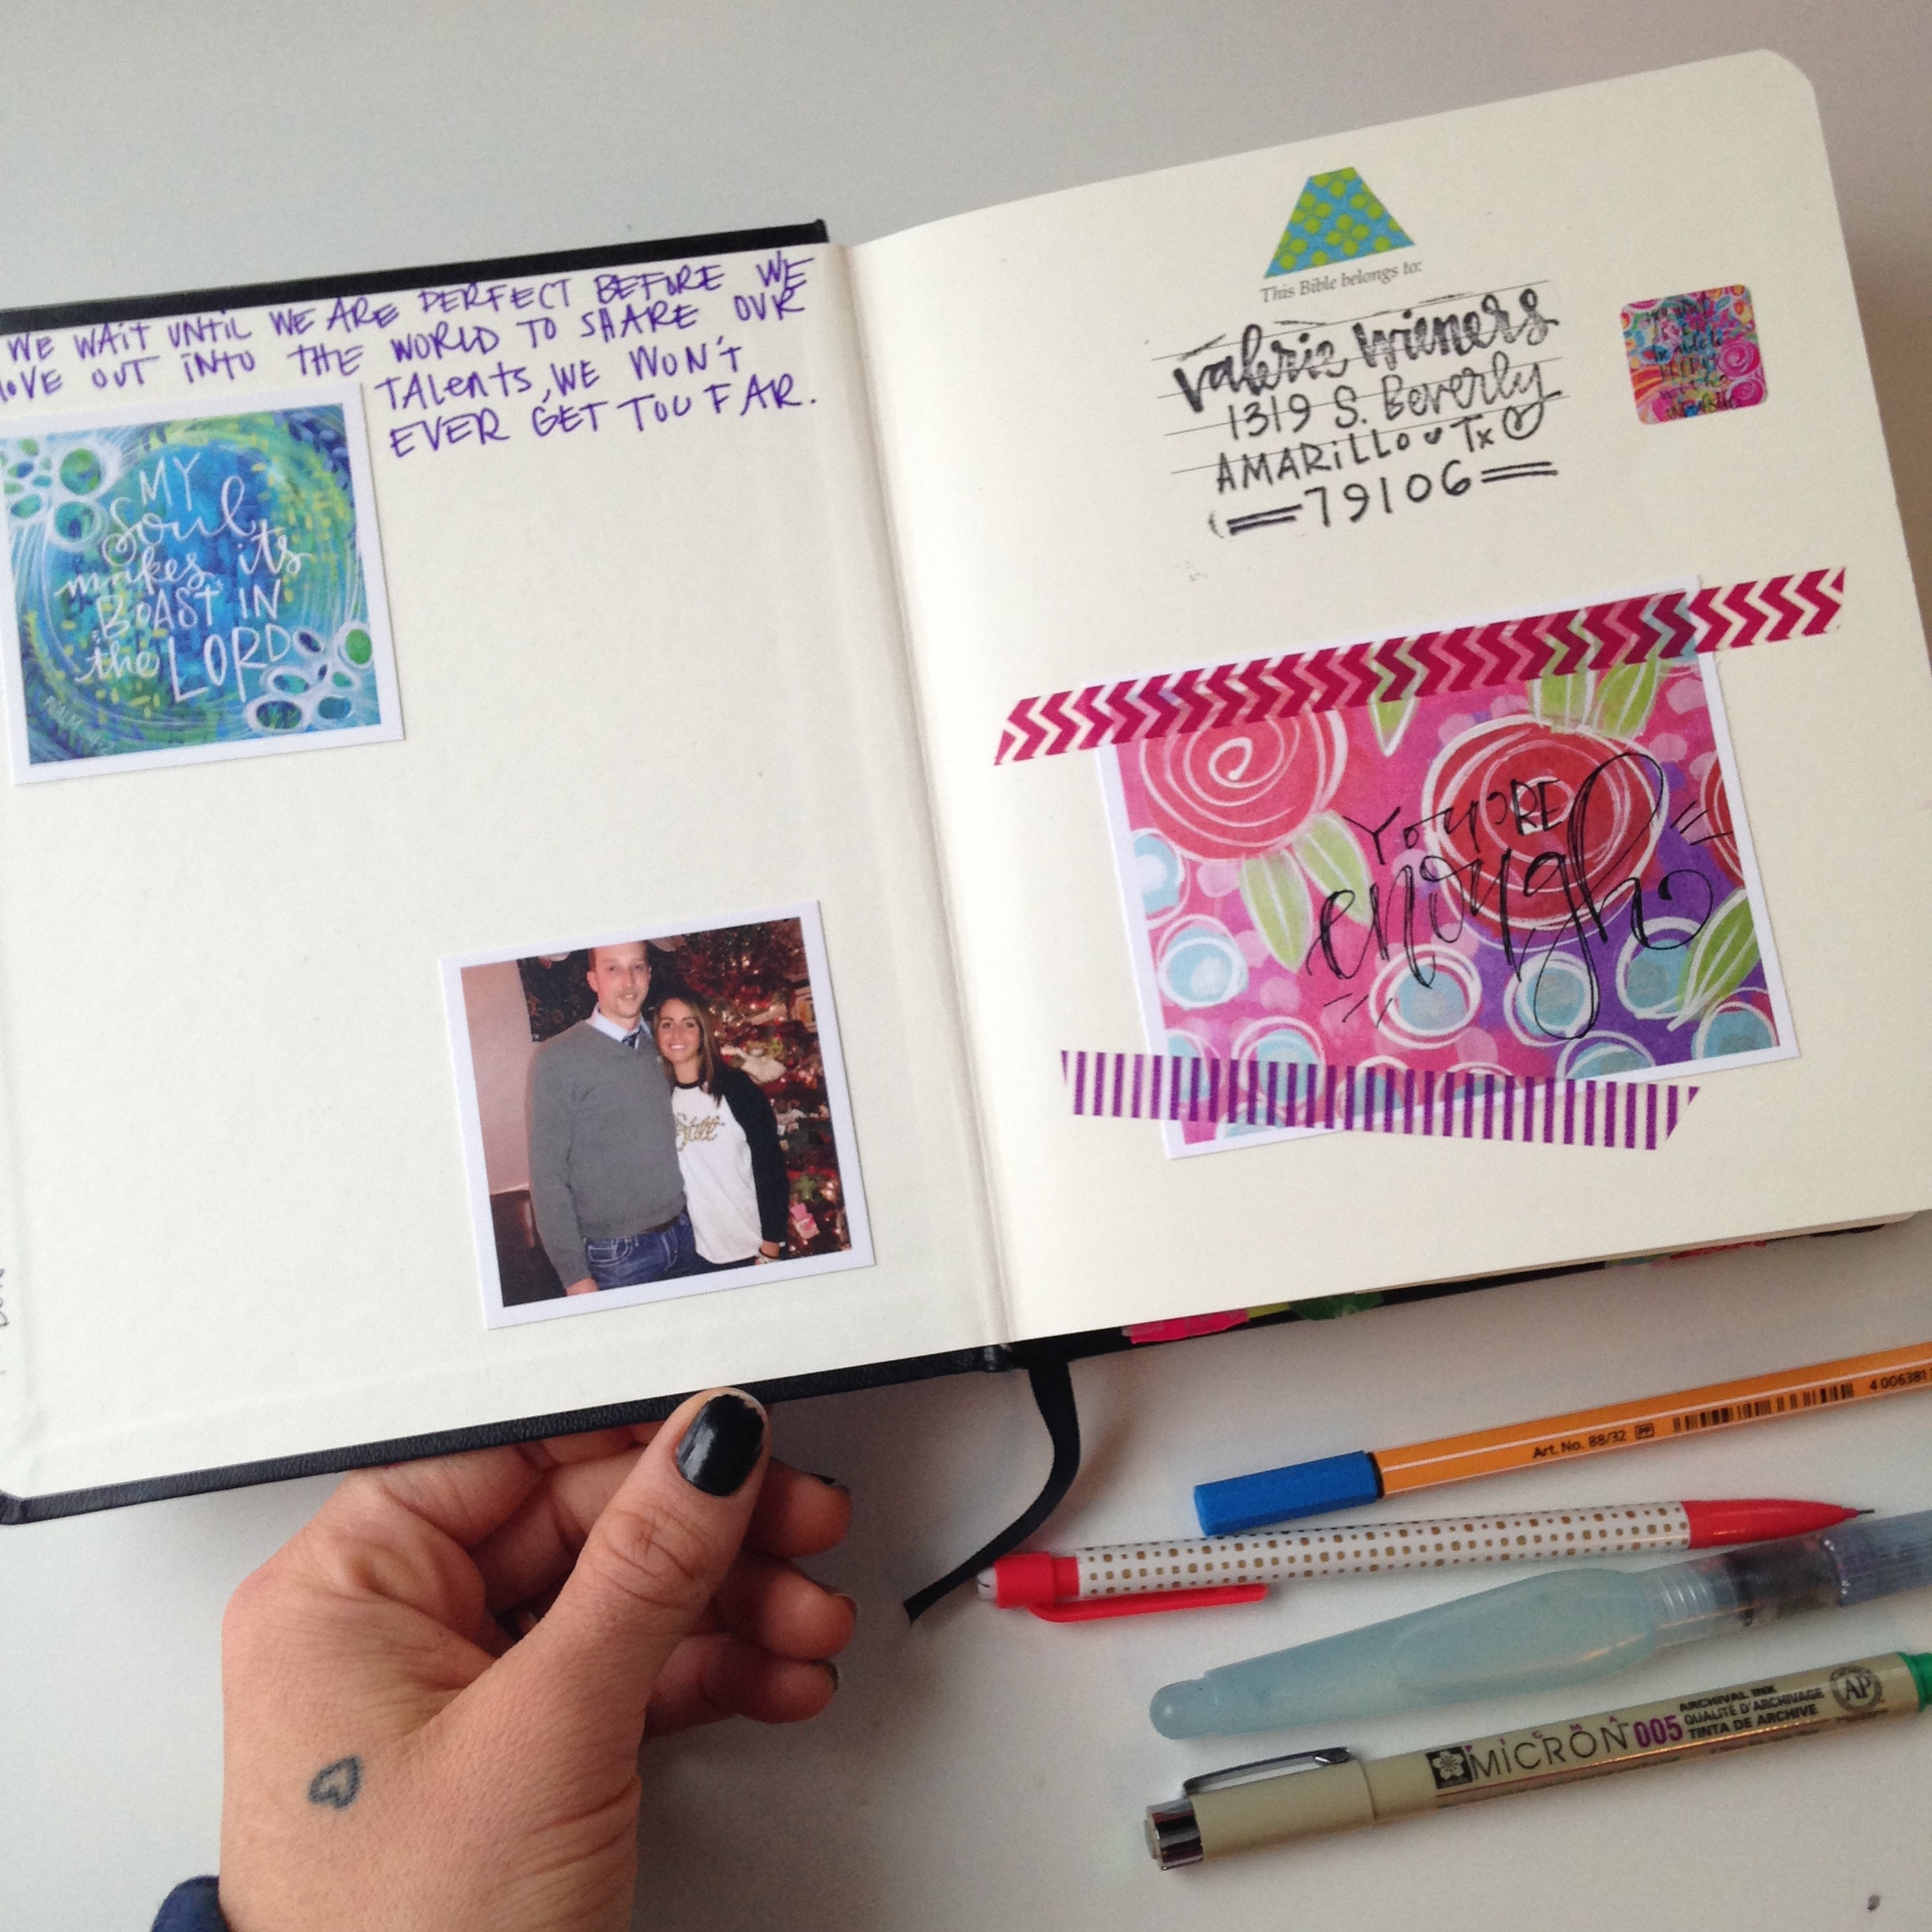 WE WAIT UNTIL WE ARE PERFECT BEFORE WE
MOVE OUT INTO THE WORLD TO SHARE OUR
TALENTS, WE WON'T
EVER GET TOO FAR.
MY
Soul
makes its
BOAST IN
the LORD
Still
This Bible belongs to:
Valerie Wieners
1319 S. Beverly
AMARILLO TX
79106
YOU ARE
enough
Art. No. 88/32
4 006381
MICRON 005
ARCHIVAL INK
QUALITÉ D'ARCHIVAGE
TINTA DE ARCHIVE
AP